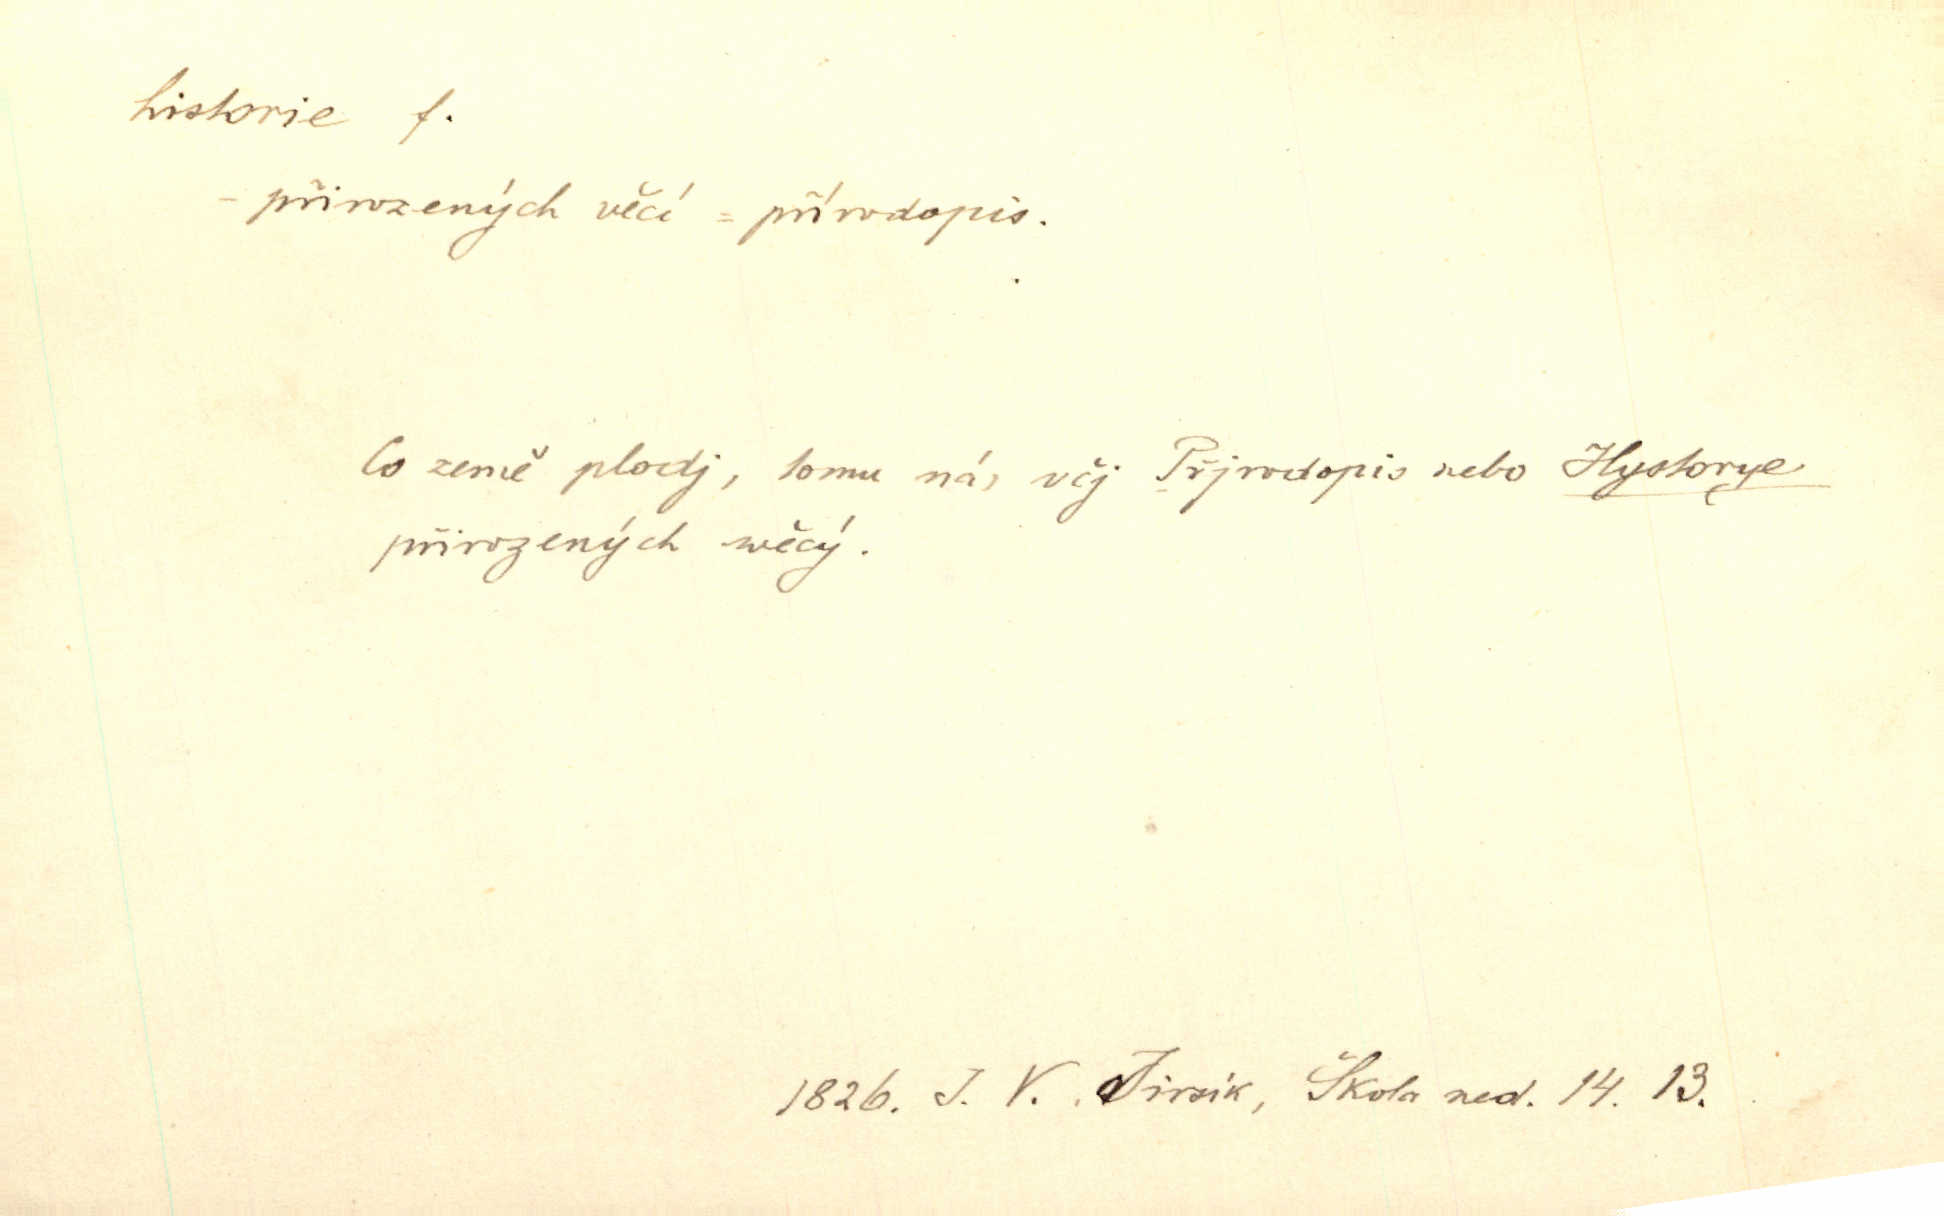 historie f.
– přirozených věcí = přírodopis.
Co země plodj, tomu nás včj Přjrodopis nebo Hystorye
přirozených wěcý.
1826. J. V. Jirsík, Škola ned. 14. 13.